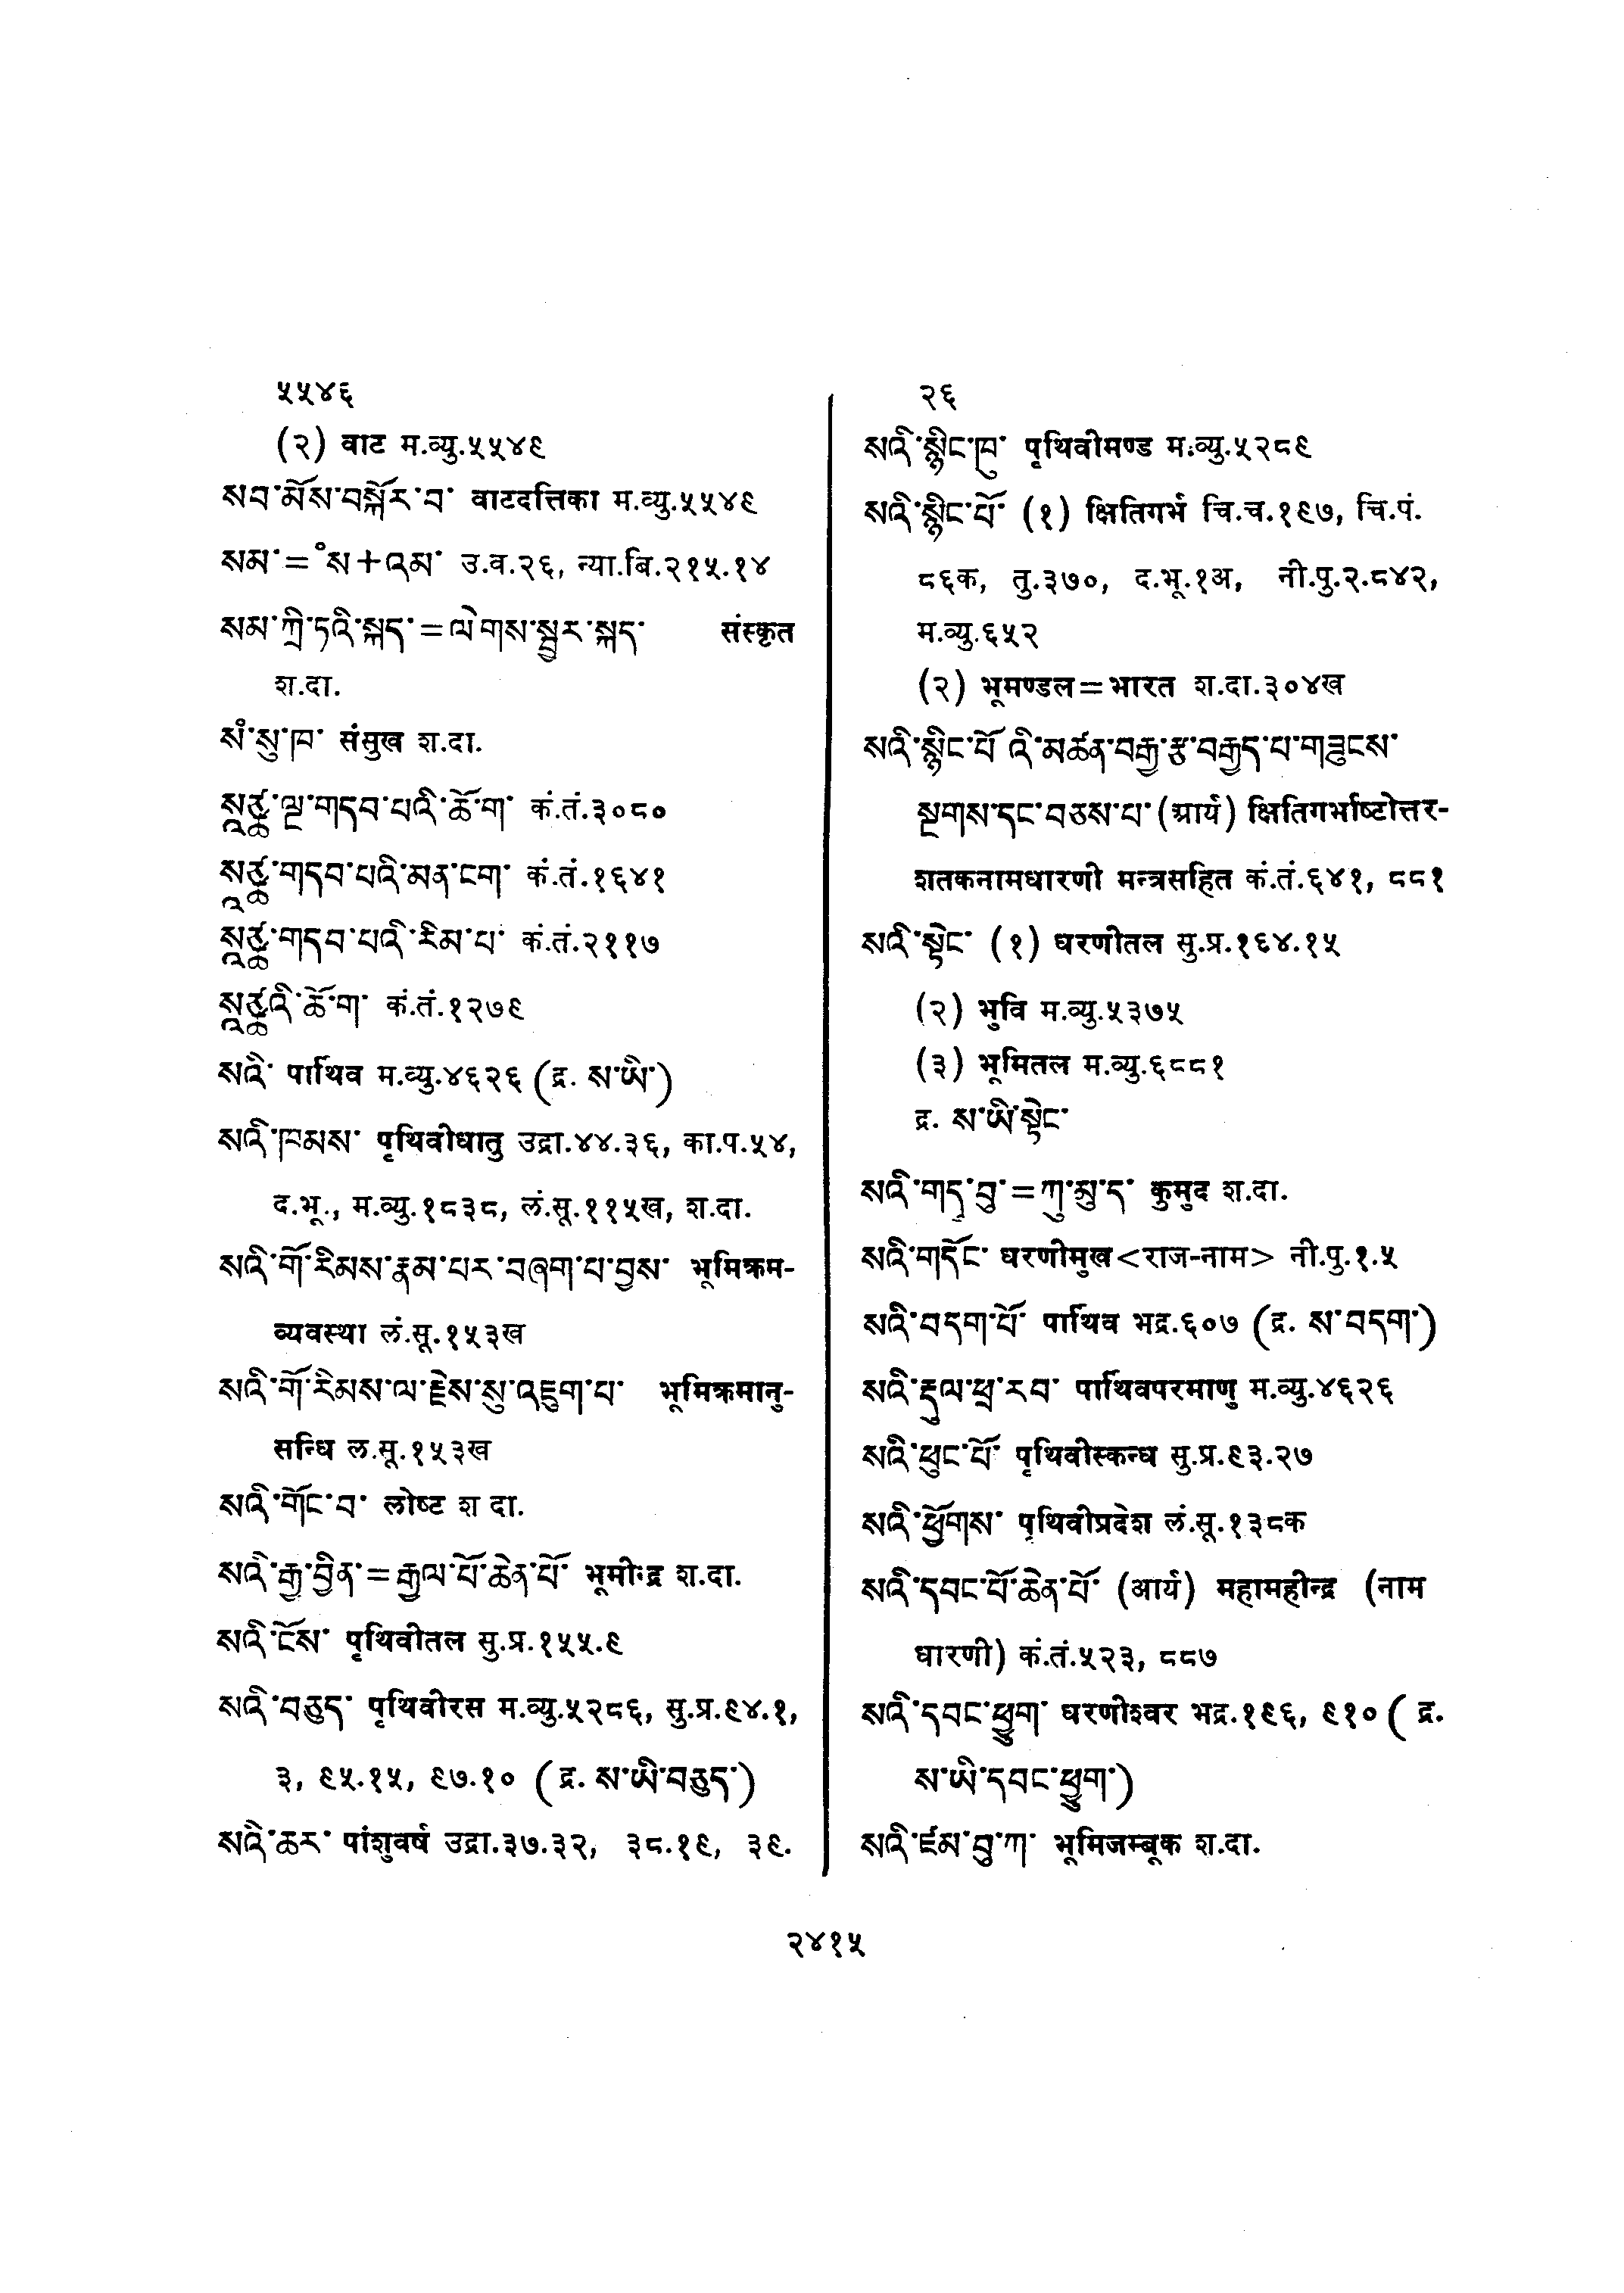 ५५४६
(२) वाट म.व्यु.५५४९
སབ་མོས་བསྐོར་བ་ वाटदत्तिका म.व्यु.५५४९
སམ་=  ས+འམ་ उ.व.२६, न्या.बि.२१५.१४
སམ་ཀྲི་ཏའི་སྐད་=ལེགས་སྦྱར་སྐད་ संस्कृत
श.दा.
སཾ་སུ་ཁ་ संसुख श.दा.
གདབ་པའི་ཆོ་ག་ कं.तं.३०८०
གདབ་པའི་མན་ངག་ कं.तं.१६४१
གདབ་པའི་རིམ་པ་ कं.तं.२११७
ཆོ་ག་ कं.तं.१२७९
སའི་ पार्थिव म.व्यु.४६२६ (द्र. ས་ཡི་)
སའི་ཁམས་ पृथिवीधातु उद्रा.४४.३६, का.प.५४,
द.भू., म.व्यु.१८३८, लं.सू.११५ख, श.दा.
སའི་གོ་རིམས་རྣམ་པར་བཞག་པ་བྱས་ भूमिक्रम-
व्यवस्था लं.सू.१५३ख
སའི་གོ་རིམས་ལ་རྗེས་སུ་འཇུག་པ་ भूमिक्रमानु-
सन्धि ल.सू.१५३ख
སའི་གོང་བ་ लोष्ट श दा.
སའི་རྒྱ་བྱིན་=རྒྱལ་པོ་ཆེན་པོ་ श.दा.
སའི་ངོས་ पृथिवीतल सु.प्र.१५५.९
སའི་བཅུད་ पृथिवीरस म.व्यु.५२८६, सु.प्र.९४.१,
३, ९५.१५, ९७.१० (द्र. ས་ཡི་བཅུད་)
སའི་ཆར་ पांशुवर्ष उद्रा.३७.३२, ३८.१९, ३९.
२६
སའི་སྙིང་ཁུ་ पृथिवीमण्ड म.व्यु.५२८९
སའི་སྙིང་པོ་ (१) क्षितिगर्भ चि.च.१९७, चि.पं.
८६क, तु.३७०, द.भू.१अ, नी.पु.२.८४२,
म.व्यु.६५२
(२) भूमण्डल=भारत श.दा.३०४ख
སའི་སྙིང་པོ འི་མཚན་བརྒྱ་རྩ་བརྒྱད་པ་གཟུངས་
སྔགས་དང་བཅས་པ་ (आर्य) क्षितिगर्भाष्टोत्तर-
शतकनामधारणी मन्त्रसहित कं.तं.६४१, ८८१
སའི་སྟེང་ (१) धरणीतल सु.प्र.१६४.१५
(२) भुवि म.व्यु.५३७५
(३) भूमितल म.व्यु.६८८१
द्र. ས་ཡི་སྟེང་
སའི་གདུ་བུ་=ཀུ་མུ་ད་ कुमुद श.दा.
སའི་གདོང་ धरणीमुख<राज-नाम> नी.पु.१.५
སའི་བདག་པོ་ पार्थिव भद्र.६०७ (द्र. ས་བདག་)
སའི་རྡུལ་ཕྲ་རབ་ पार्थिवपरमाणु म.व्यु.४६२६
སའི་ཕུང་པོ་ पृथिवीस्कन्ध सु.प्र.९३.२७
སའི་ཕྱོགས་ पृथिवीप्रदेश लं.सू.१३८क
སའི་དབང་པོ་ཆེན་པོ་ (आर्य) महामहीन्द्र (नाम
धारणी) कं.तं.५२३, ८८७
སའི་དབང་ཕྱུག་ धरणीश्वर भद्र.१९६, ९१० ( द्र.
ས་ཡི་དབང་ཕྱུག་)
སའི་ཛམ་བུ་ཀ་ भूमिजम्बूक श.दा.
२४१५